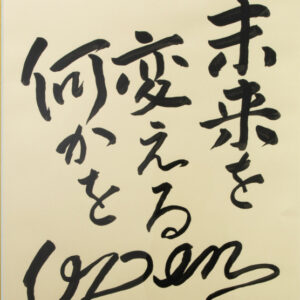 未来を
変える
何かを
open